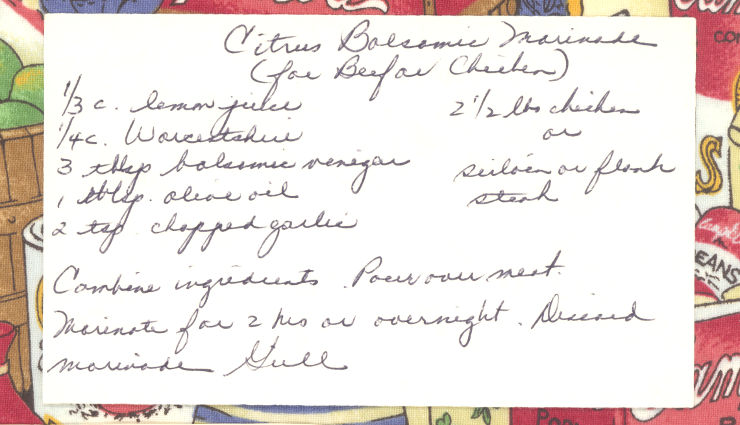 Citrus Balsamic Marinade
(for Beef or Chicken)
1/3 c. lemon juice
1/4 c. Worcestshire
3 tblsp balsamic venegar
1 tblsp. olive oil
2 tsp chopped garlic
2 1/2 lbs chicken
or
sirloin or flank
steak
Combine ingredients. Pour over meat.
Marinate for 2 hrs or overnight. Discard
marinade Grill
EANS